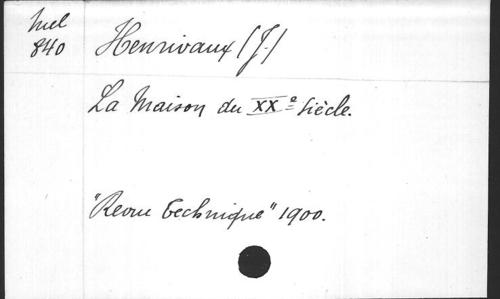 Mel
840
Henrivaux (J.)
La Maison du XXe Siècle.
"Revue technique" 1900.